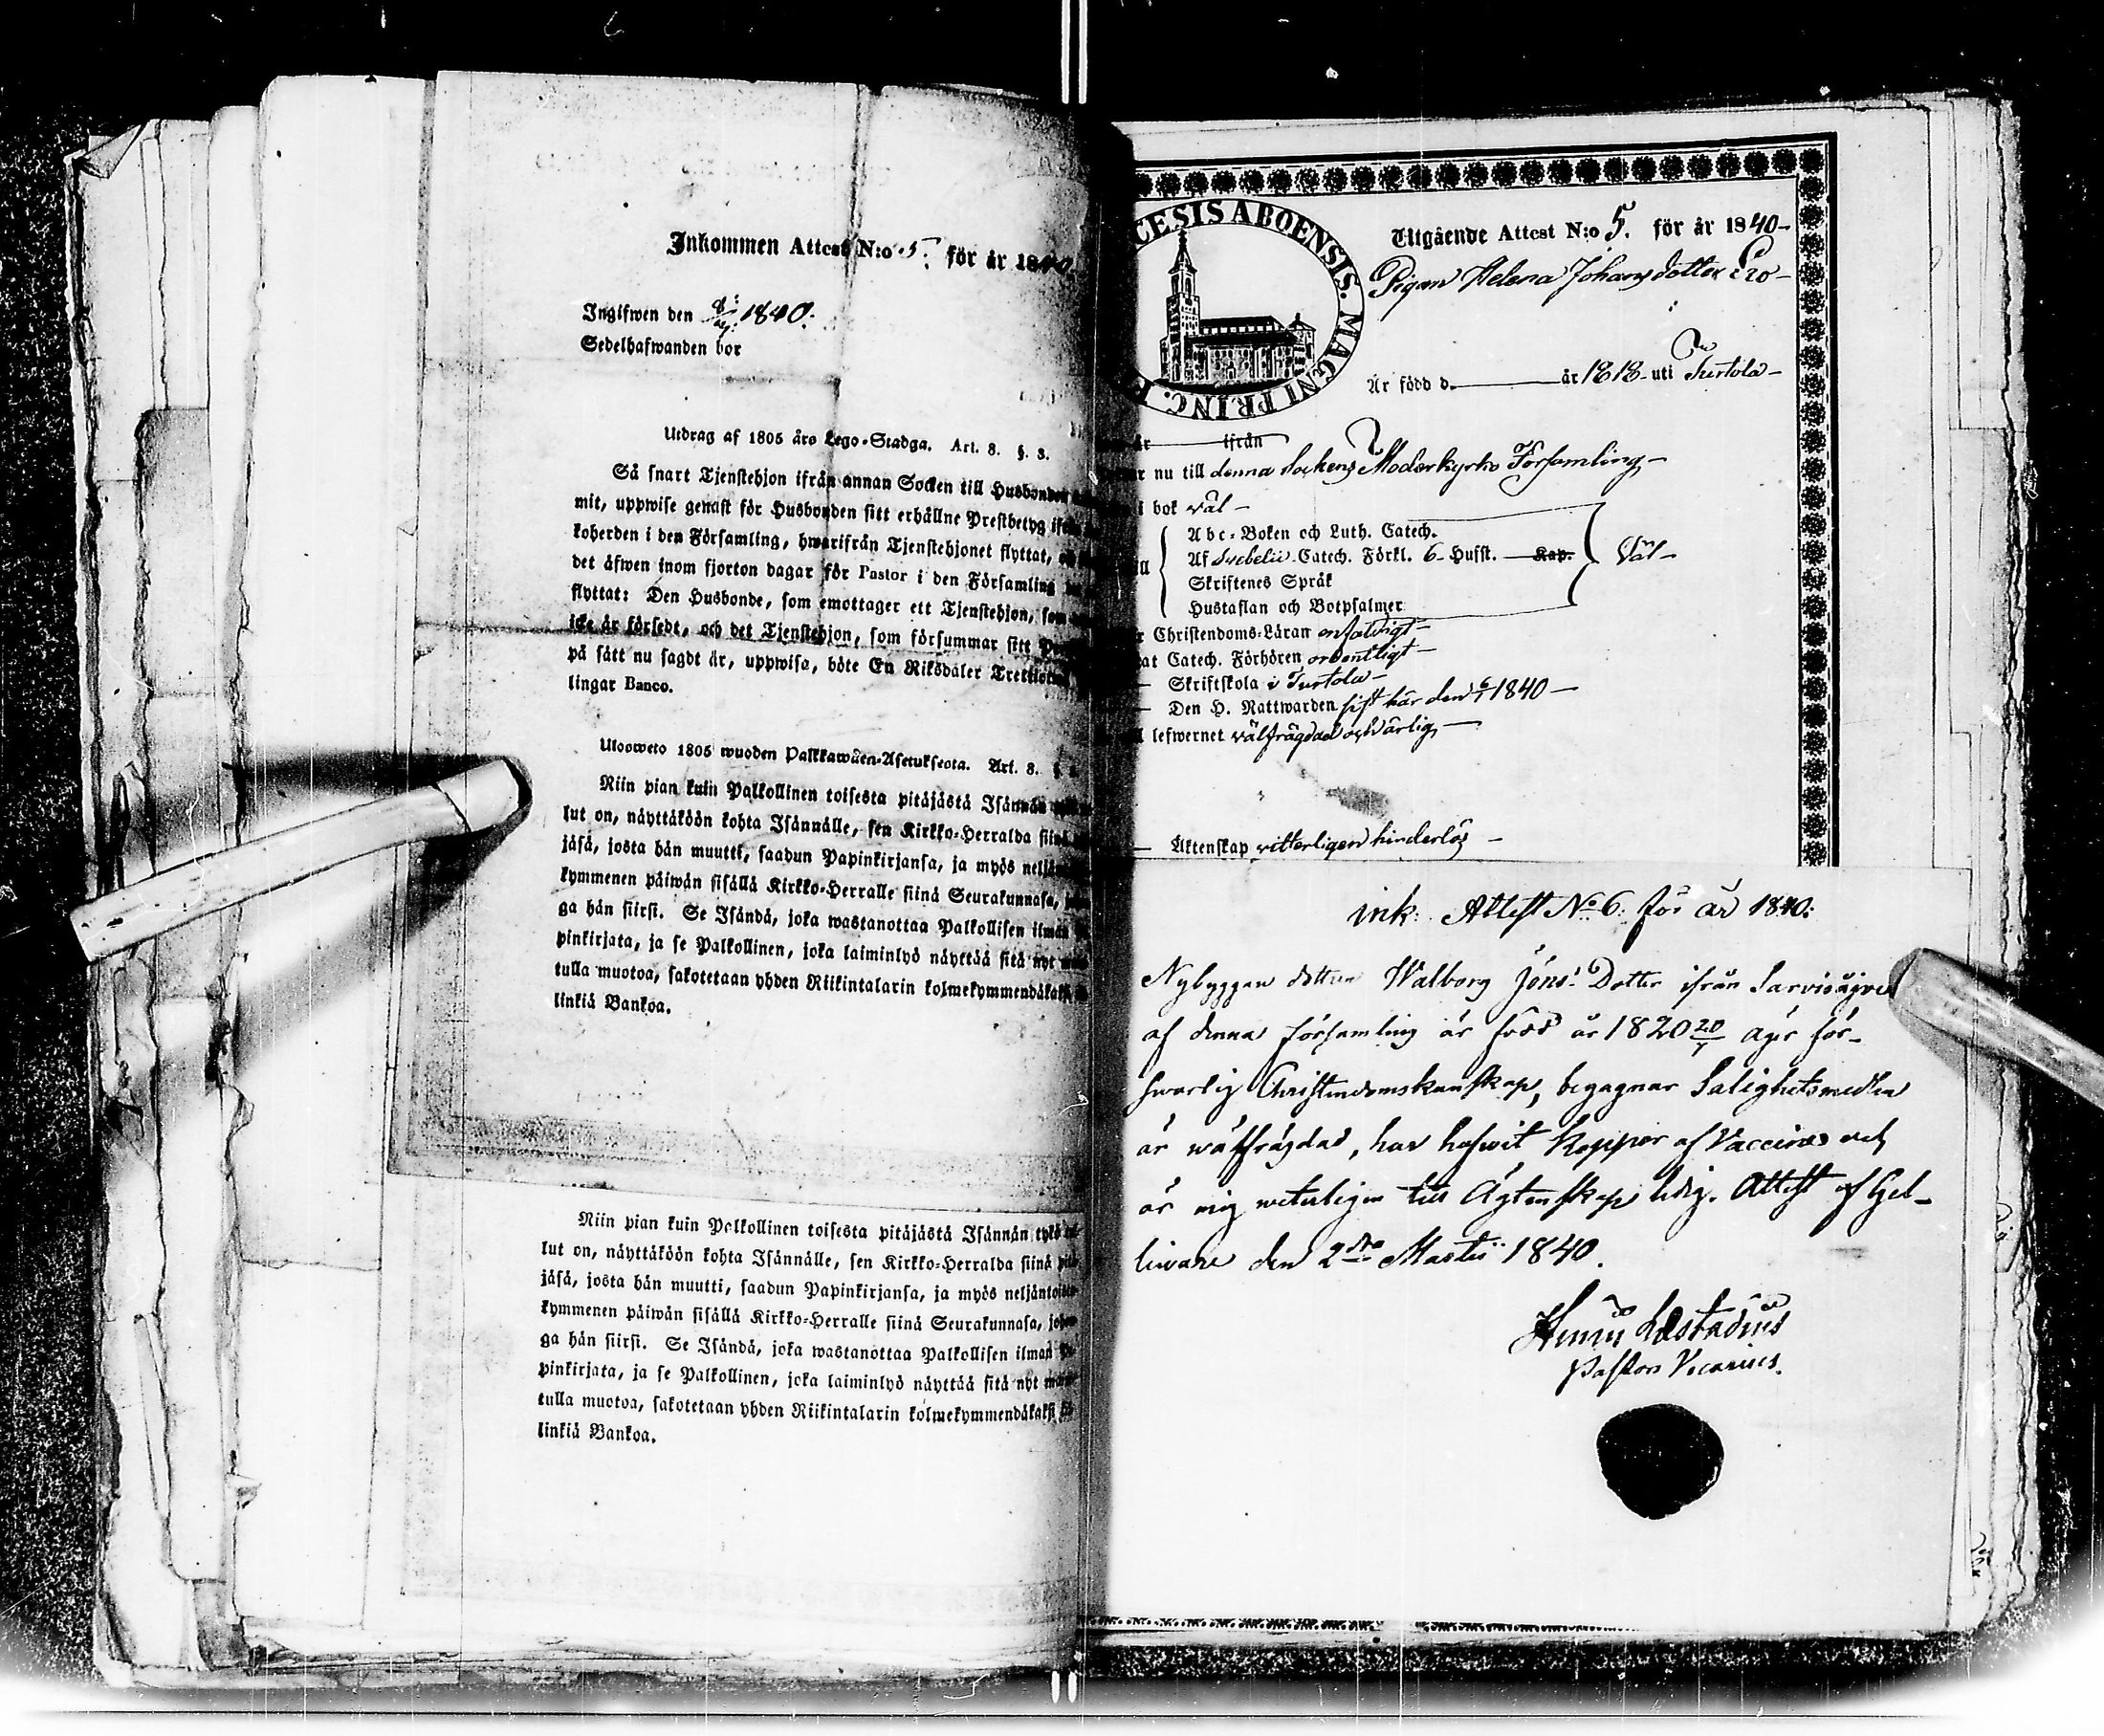 Inkommen Attest N:o 5. för år 1840
Ingifwen den 1840.
Sedelhafwanden bor
Utdrag af 1805 års Lego-Stadga. Art. 8. §. 3.
Så snart Tjenstehjon ifrån annan Socken till Husbonden
mit, uppwise genast för Husbonden sitt erhållne Prestbetyg ifrån
koherden i den Församling, hwarifrån Tjenstehjonet flyttat,
det äfwen inom fjorton dagar för Pastor i den Församling
flyttat: Den Husbonde, som emottager ett Tjenstehjon, som
icke är försedt, och det Tjenstehjon, som försummar sitt
på sätt nu sagdt är, uppwisa, böte En Riksdaler Trettiotwå
lingar Banco.
Ulosweto 1805 wuoden Palkkawäen-Asetuksesta. Art. 8. §
Niin pian kuin Palkollinen toisesta pitäjästä Isännän
lut on, näyttäköön kohta Isännälle, sen Kirkko-Herralda siinä
jäsä, josta hän muutti, saadun Papinkirjansa, ja myös neljän
kymmenen päiwän sisällä Kirkko-Herralle siinä Seurakunnasa,
ga hän siirsi. Se Isändä, joka wastanottaa Palkollisen ilman
pinkirjata, ja se Palkollinen, joka laiminlyö näyttää sitä nyt
tulla muotoa, sakotetaan yhden Riikintalarin kolmekymmendäkaksi
linkiä Bankoa.
Niin pian kuin Palkollinen toisesta pitäjästä Isännän tykö
lut on, näyttäköön kohta Isännälle, sen Kirkko-Herralda siinä
jäsä, josta hän muutti, saadun Papinkirjansa, ja myös neljäntoista
kymmenen päiwän sisällä Kirkko-Herralle siinä Seurakunnasa,
ga hän siirsi. Se Isändä, joka wastanottaa Palkollisen ilman
pinkirjata, ja se Palkollinen, joka laiminlyö näyttää sitä nyt
tulla muotoa, sakotetaan yhden Riikintalarin kolmekymmendäkaksi
linkiä Bankoa.
CESIS ABOENSIS. MAGNI PRINC. F
Utgående Attest N:o 5. för år 1840-
Pigan Helena Johansdotter
Är född d. år 1818 uti Turtola
år ifrån
nu till denna Sockens Moderkyrko Församling
i bok väl
Abc-Boken och Luth. Catech.
Af Svebelii Catech. Förkl. 6 Hufst. Kap. Väl
Skriftenes Språk
Hustaflan och Botpsalmer
Christendoms-Läran enfaldigt
at Catech. Förhören ordentligt
Skriftskola i Turtola
Den H. Nattwarden sist här den 6/1 1840
lefwernet välfrägdad och ärlig
Äktenskap vitterligen hinderlös
ink: Attest No 6: för år 1840:
Nybyggare dottren Walborg Jöns Dotter ifrån
af denna församling är född år 1820 äger för-
swarlig Christendomskunskap, begagnar Salighetsmedlen
är wälfrägdad, har hafwit Koppor af Vaccinen och
är mig weterligen till Ägtenskap ledig. Attest af Gel-
liware den 2dra Martii 1840.
Henric Læstadius
Pastors Vicarius.